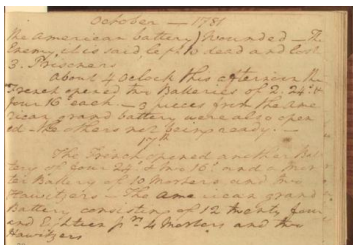 October — 1781
the american battery) wounded — The
Enemy, it is said left 10 dead and lost
3. Prisoners
About 4 Oclock this afternoon the
French opened two Batteries of 2. 24.s &
four 16s each — 3 pieces from the ame
rican grand battery were also open
ed — the others not being ready. —
10th
The French opened another Bat
tery of four 24s & two 16s and a Mor
ter Battery of 10 Morters and two
Hawitzers — The american grand
Battery consisting of 12 twenty fours
and Eighteen prs 4 Morters and two
Hawitzers